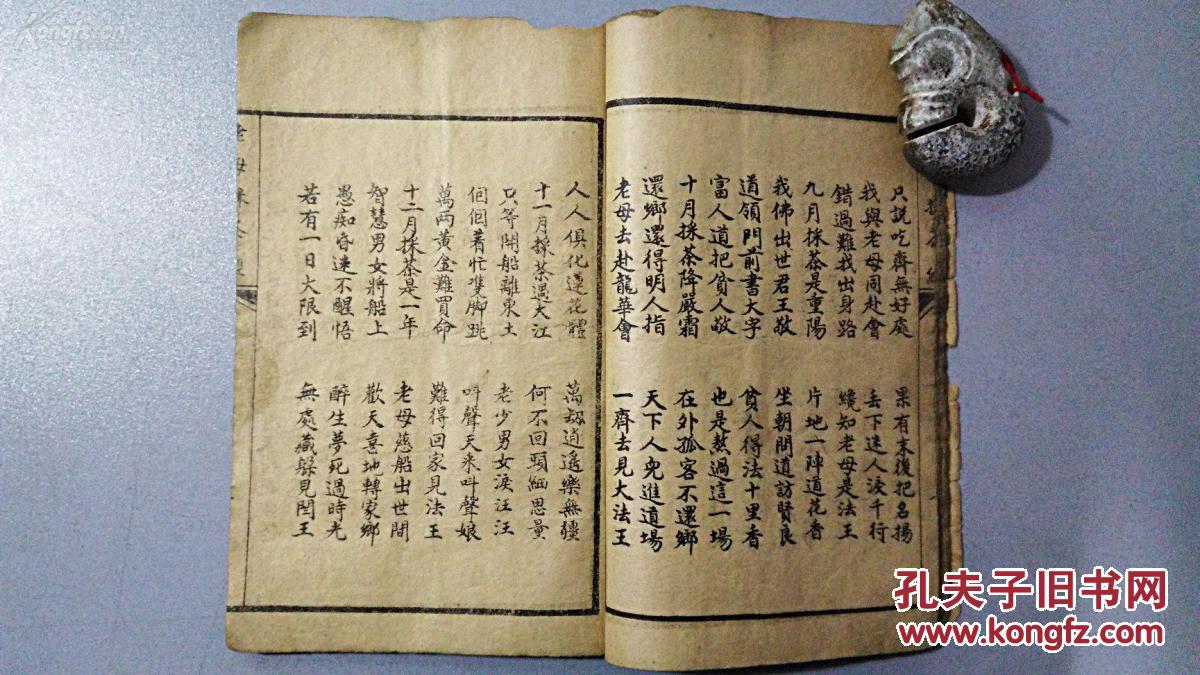 只説吃齊無好處 果有末後把名揚
我與老母同赴會 丢下迷人淚千行
錯過難找出身路 纔知老母是法王
九月採茶是重陽 片地一陣道花香
我佛出世君王敬 坐朝問道訪賢良
道領門前書大字 貧人得法十里香
富人道把貧人敬 也是熬過這一場
十月採茶降嚴霜 在外孤客不還鄉
還鄉還得明人指 天下人兒進道場
老母去赴龍華會 一齊去見大法王
人人俱化蓮花體 萬劫逍遙樂無疆
十一月採茶遇大江 何不回頭細思量
只等開船離東土 老少男女淚汪汪
個個着忙雙脚跳 叫聲天來叫聲娘
萬兩黃金難買命 難得回家見法王
十二月採茶是一年 老母慈船出世間
智慧男女將船上 歡天喜地轉家鄉
愚痴昏迷不醒悟 醉生夢死過時光
若有一日大限到 無處藏躲見閻王
孔夫子旧书网
www.kongfz.com
Kongfz.cn